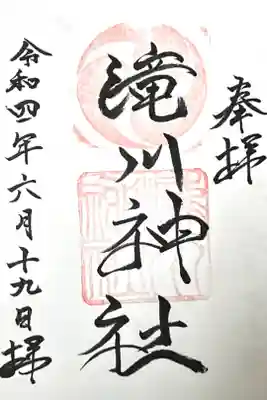 奉拝
滝川神社
令和四年六月十九日拝